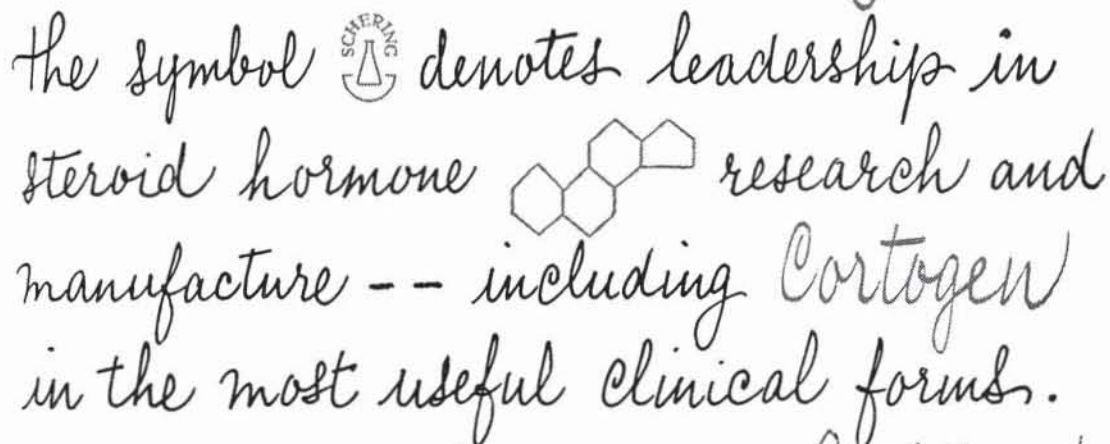 the symbol SCHERING denotes leadership in
steroid hormone research and
manufacture -- including Cortogen
in the most useful clinical forms.